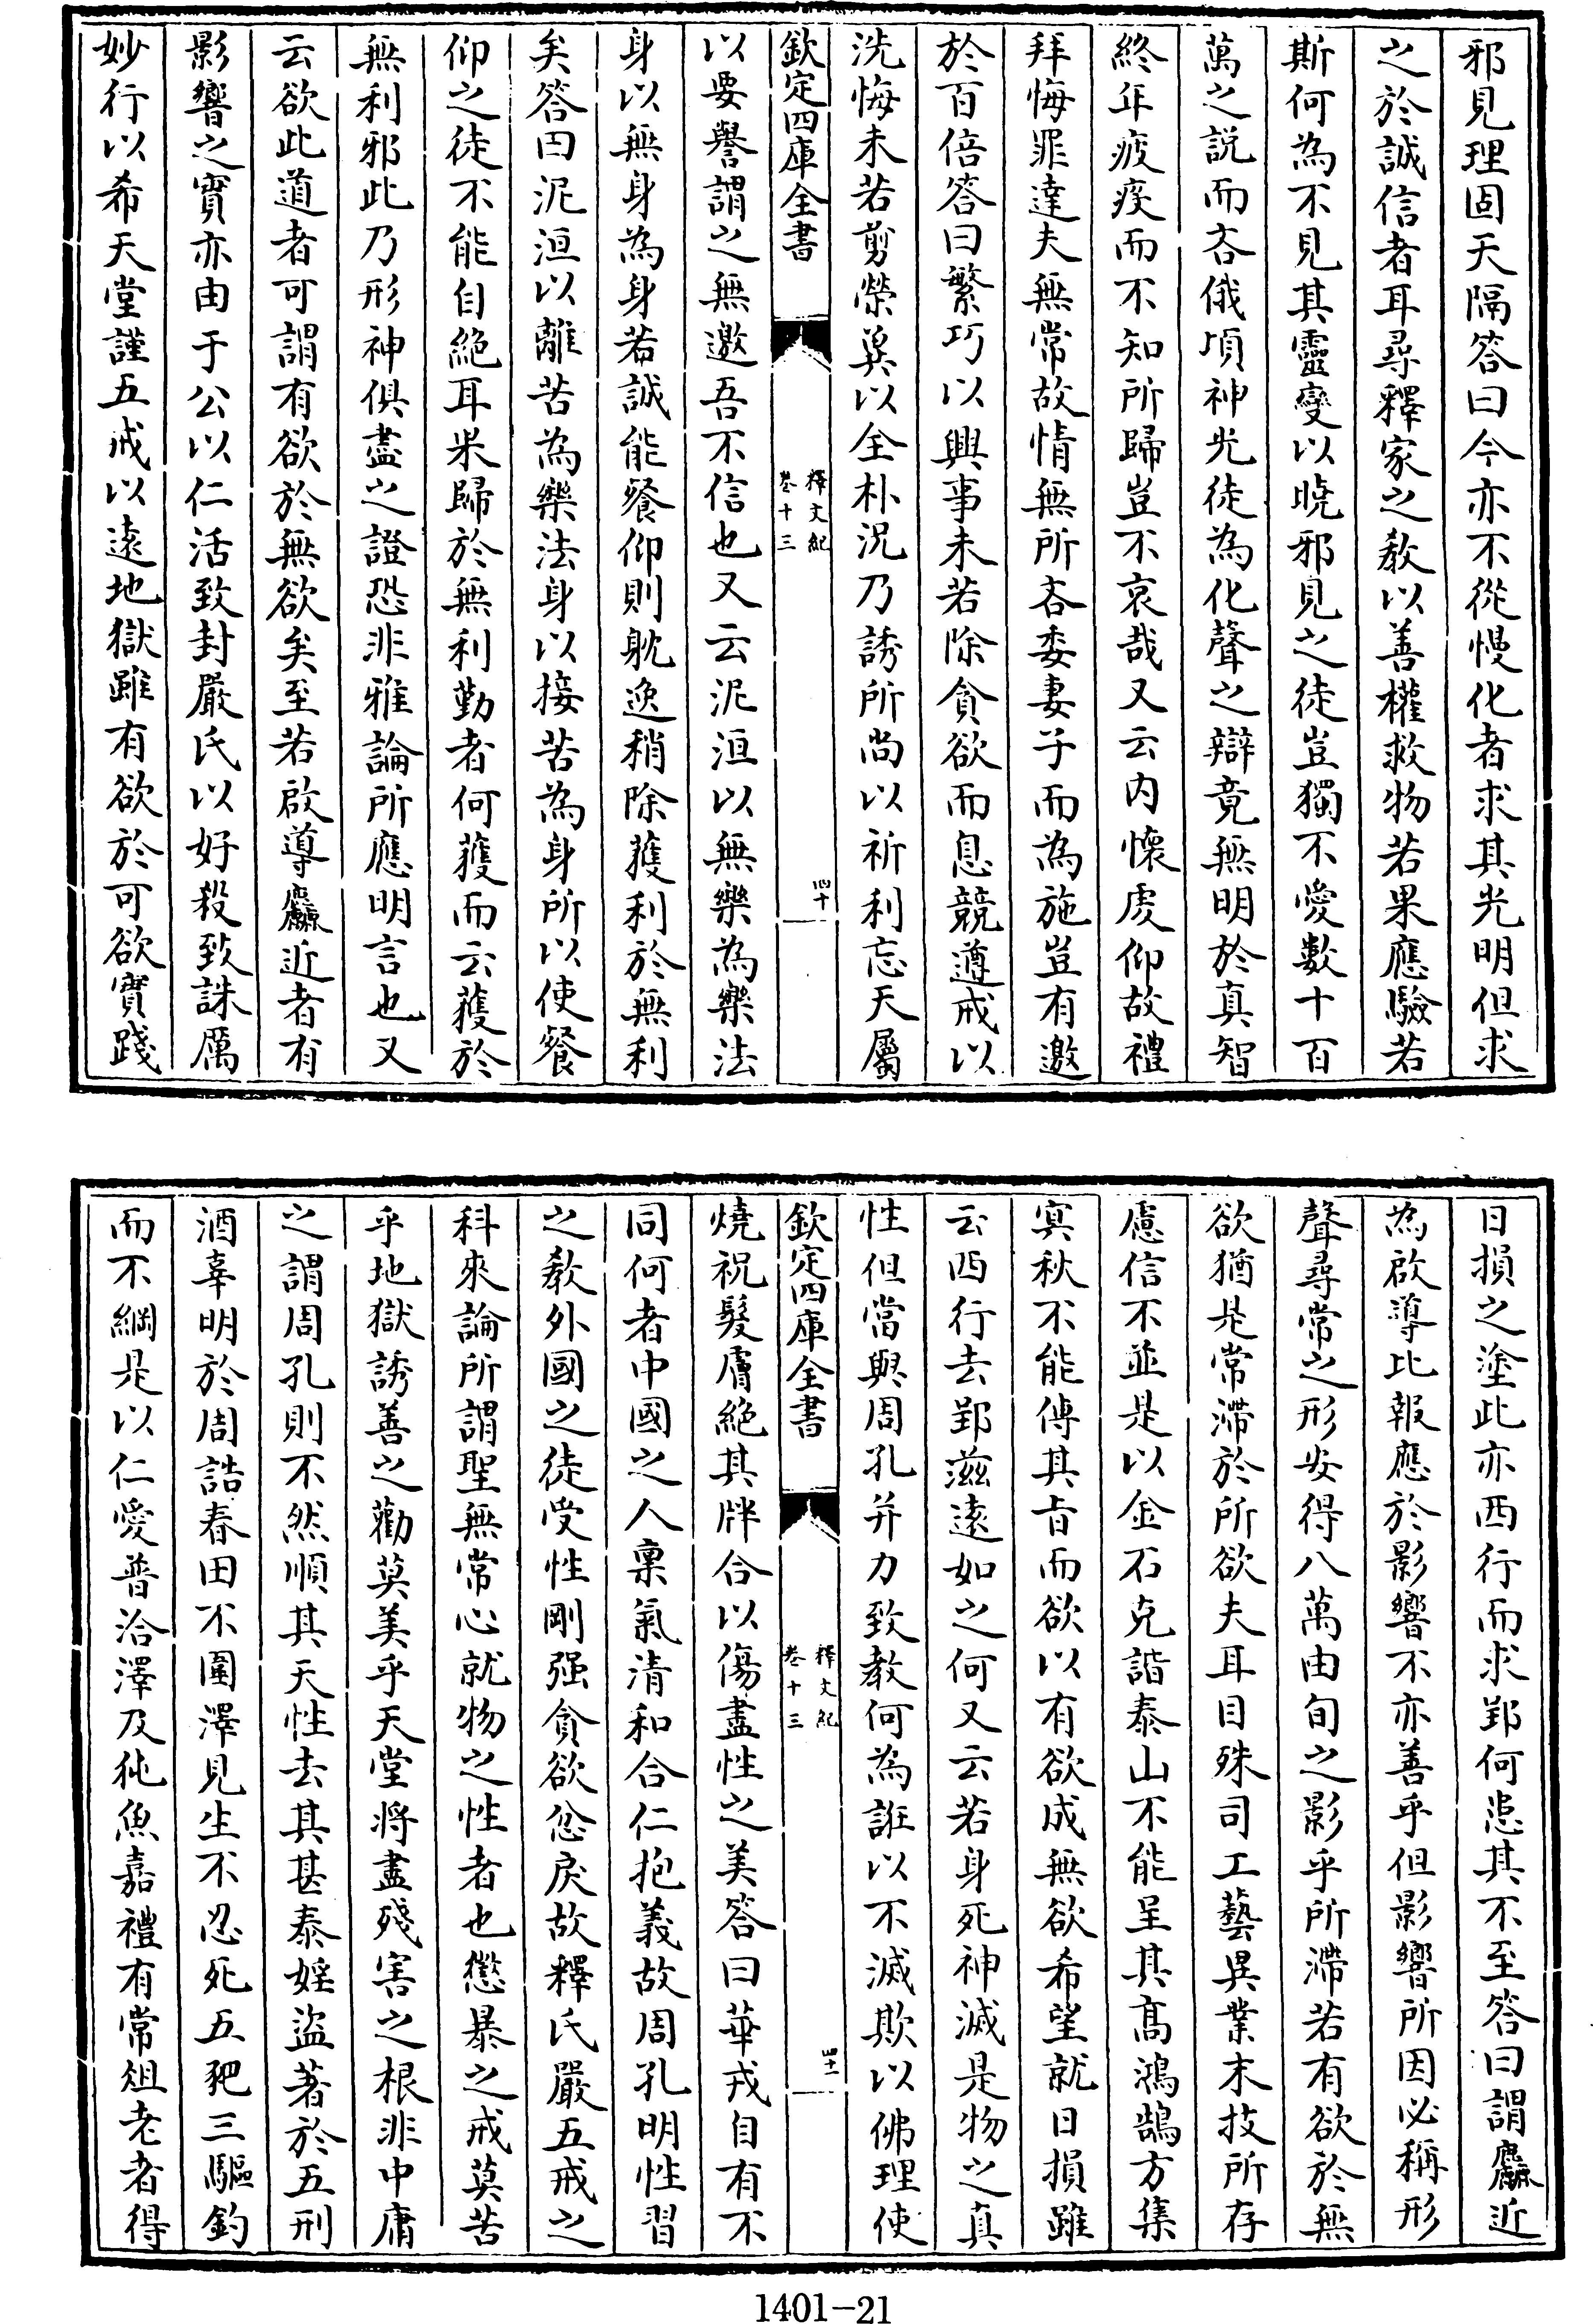 邪見理固天隔答曰今亦不從慢化者求其光明但求
之於誠信者耳尋釋家之教以善權救物若果應驗若
斯何為不見其靈變以曉邪見之徒豈獨不愛數十百
萬之說而吝俄頃神光徒為化聲之辯竟無明於真智
終年疲疫而不知所歸豈不哀哉又云內懷虔仰故禮
拜悔罪達夫無常故情無所吝委妻子而為施豈有邀
於百倍答曰繁巧以興事未若除貪欲而息競遵戒以
洗悔未若剪榮冀以全朴況乃誘所尚以祈利忘天屬
欽定四庫全書
釋文紀
卷十三
四十
以要譽謂之無邀吾不信也又云泥洹以無樂為樂法
身以無身為身若誠能餐仰則躭逸稍除獲利於無利
矣答曰泥洹以離苦為樂法身以接苦為身所以使餐
仰之徒不能自絕耳果歸於無利勤者何獲而云獲於
無利邪此乃形神俱盡之證恐非雅論所應明言也又
云欲此道者可謂有欲於無欲矣至若啟導麤近者有
影響之實亦由于公以仁活致封嚴氏以好殺致誅厲
妙行以希天堂謹五戒以遠地獄雖有欲於可欲實踐
日損之塗此亦西行而求郢何患其不至答曰謂麤近
為啟導比報應於影響不亦善乎但影響所因必稱形
聲尋常之形安得八萬由旬之影乎所滯若有欲於無
欲猶是常滯於所欲夫耳目殊司工藝異業末技所存
慮信不並是以金石克諧泰山不能呈其高鴻鵠方集
寅秋不能傳其旨而欲以有欲成無欲希望就日損雖
云西行去郢滋遠如之何又云若身死神滅是物之真
性但當與周孔并力致教何為誑以不滅欺以佛理使
欽定四庫全書
釋文紀
卷十三
四十一
燒祝髮膚絕其牉合以傷盡性之美答曰華戎自有不
同何者中國之人稟氣清和合仁抱義故周孔明性習
之教外國之徒受性剛强貪欲忿戾故釋氏嚴五戒之
科來論所謂聖無常心就物之性者也懲暴之戒莫苦
乎地獄誘善之勸莫美乎天堂將盡殘害之根非中庸
之謂周孔則不然順其天性去其甚泰婬盜著於五刑
酒辜明於周誥春田不圍澤見生不忍死五豝三驅釣
而不網是以仁愛普洽澤及㹠魚嘉禮有常俎老者得
1401-21